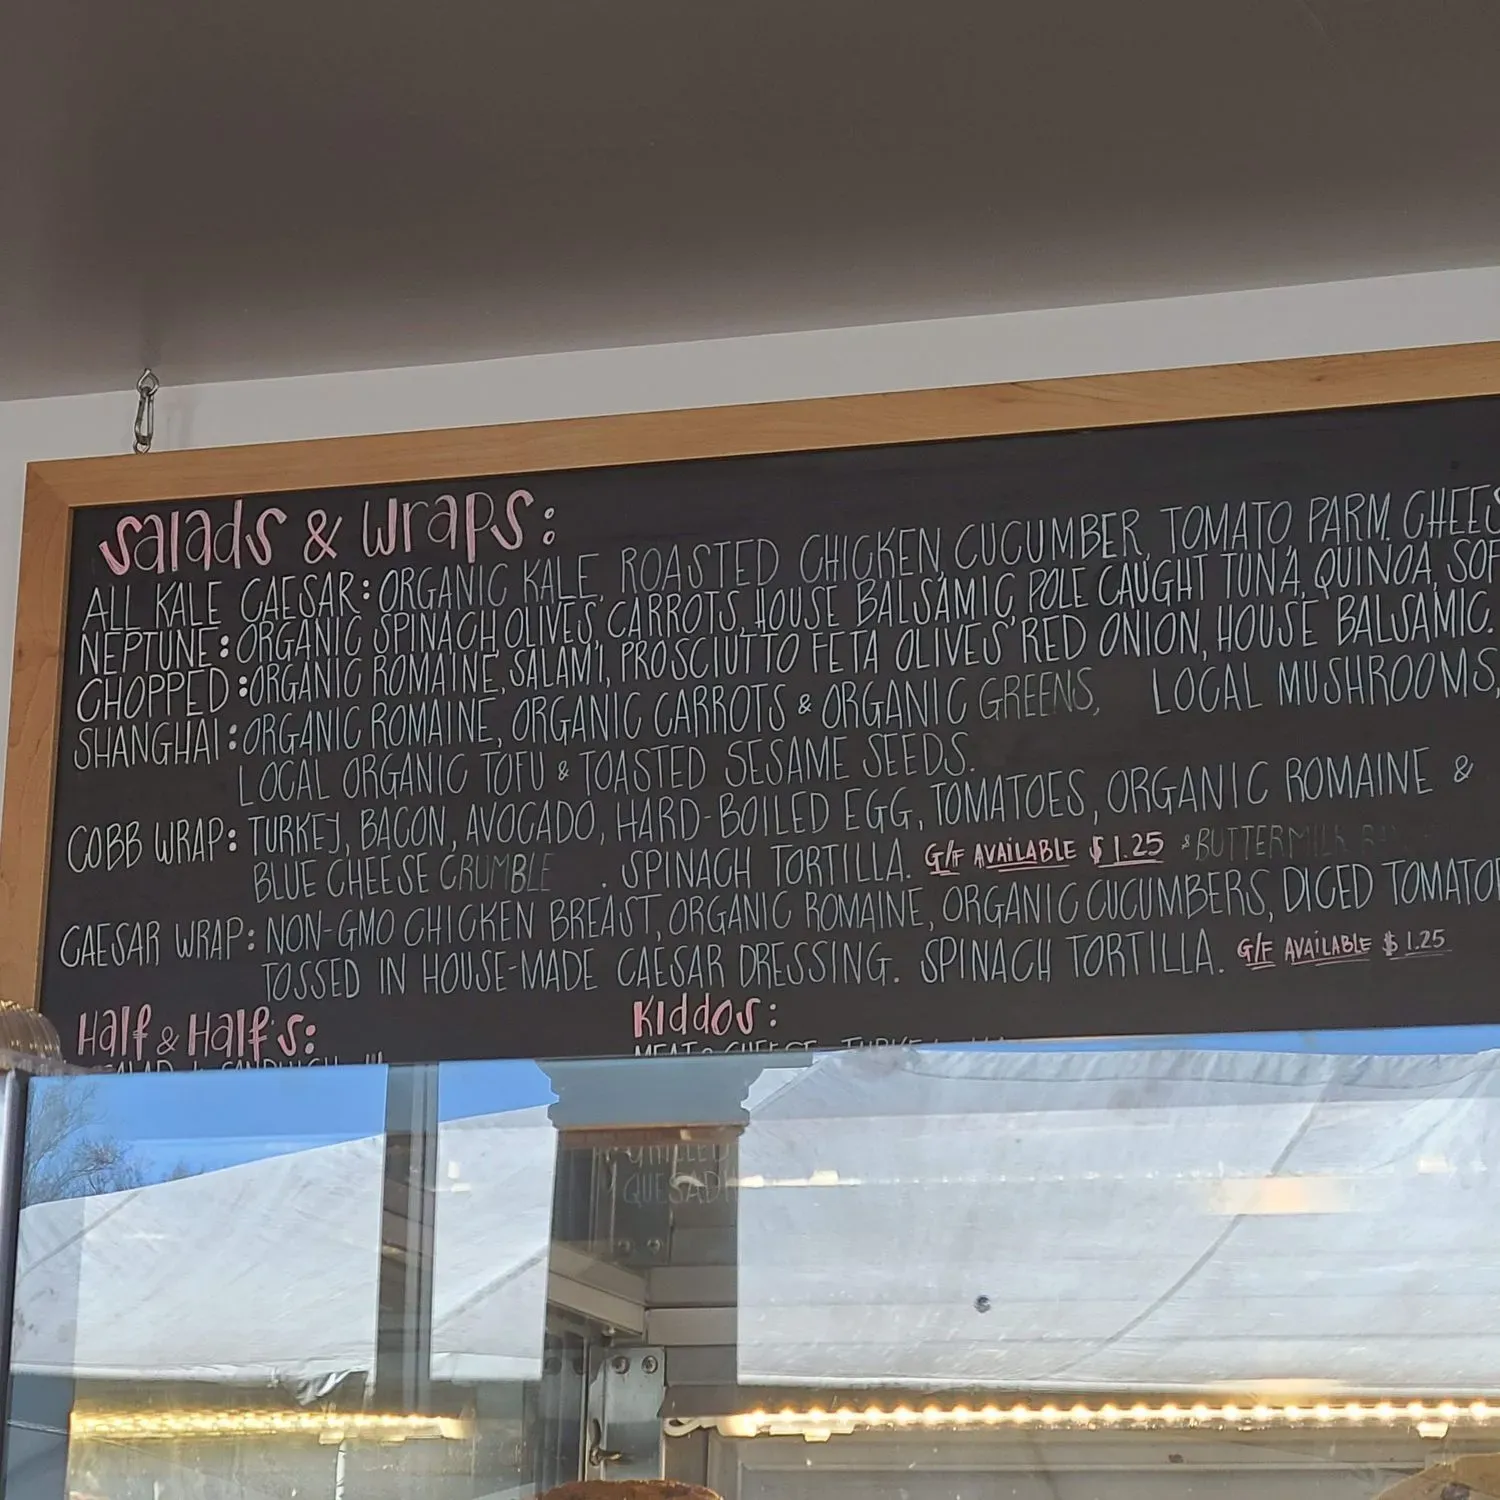 Salads & Wraps:
ALL KALE CAESAR: ORGANIC KALE, ROASTED CHICKEN, CUCUMBER, TOMATO, PARM. CHEES
NEPTUNE: ORGANIC SPINACH, OLIVES, CARROTS, HOUSE BALSAMIC, POLE CAUGHT TUNA, QUINOA, SOF
CHOPPED: ORGANIC ROMAINE, SALAMI, PROSCIUTTO FETA OLIVES RED ONION, HOUSE BALSAMIC.
SHANGHAI: ORGANIC ROMAINE, ORGANIC CARROTS & ORGANIC GREENS, LOCAL MUSHROOMS,
LOCAL ORGANIC TOFU & TOASTED SESAME SEEDS.
COBB WRAP: TURKEY, BACON, AVOCADO, HARD-BOILED EGG, TOMATOES, ORGANIC ROMAINE &
BLUE CHEESE CRUMBLE . SPINACH TORTILLA. G/F AVAILABLE $1.25 & BUTTERMILK
CAESAR WRAP: NON-GMO CHICKEN BREAST, ORGANIC ROMAINE, ORGANIC CUCUMBERS, DICED TOMATO
TOSSED IN HOUSE-MADE CAESAR DRESSING. SPINACH TORTILLA. G/F AVAILABLE $1.25
Half & Half's: Kiddos:
MEAT & CHEESE